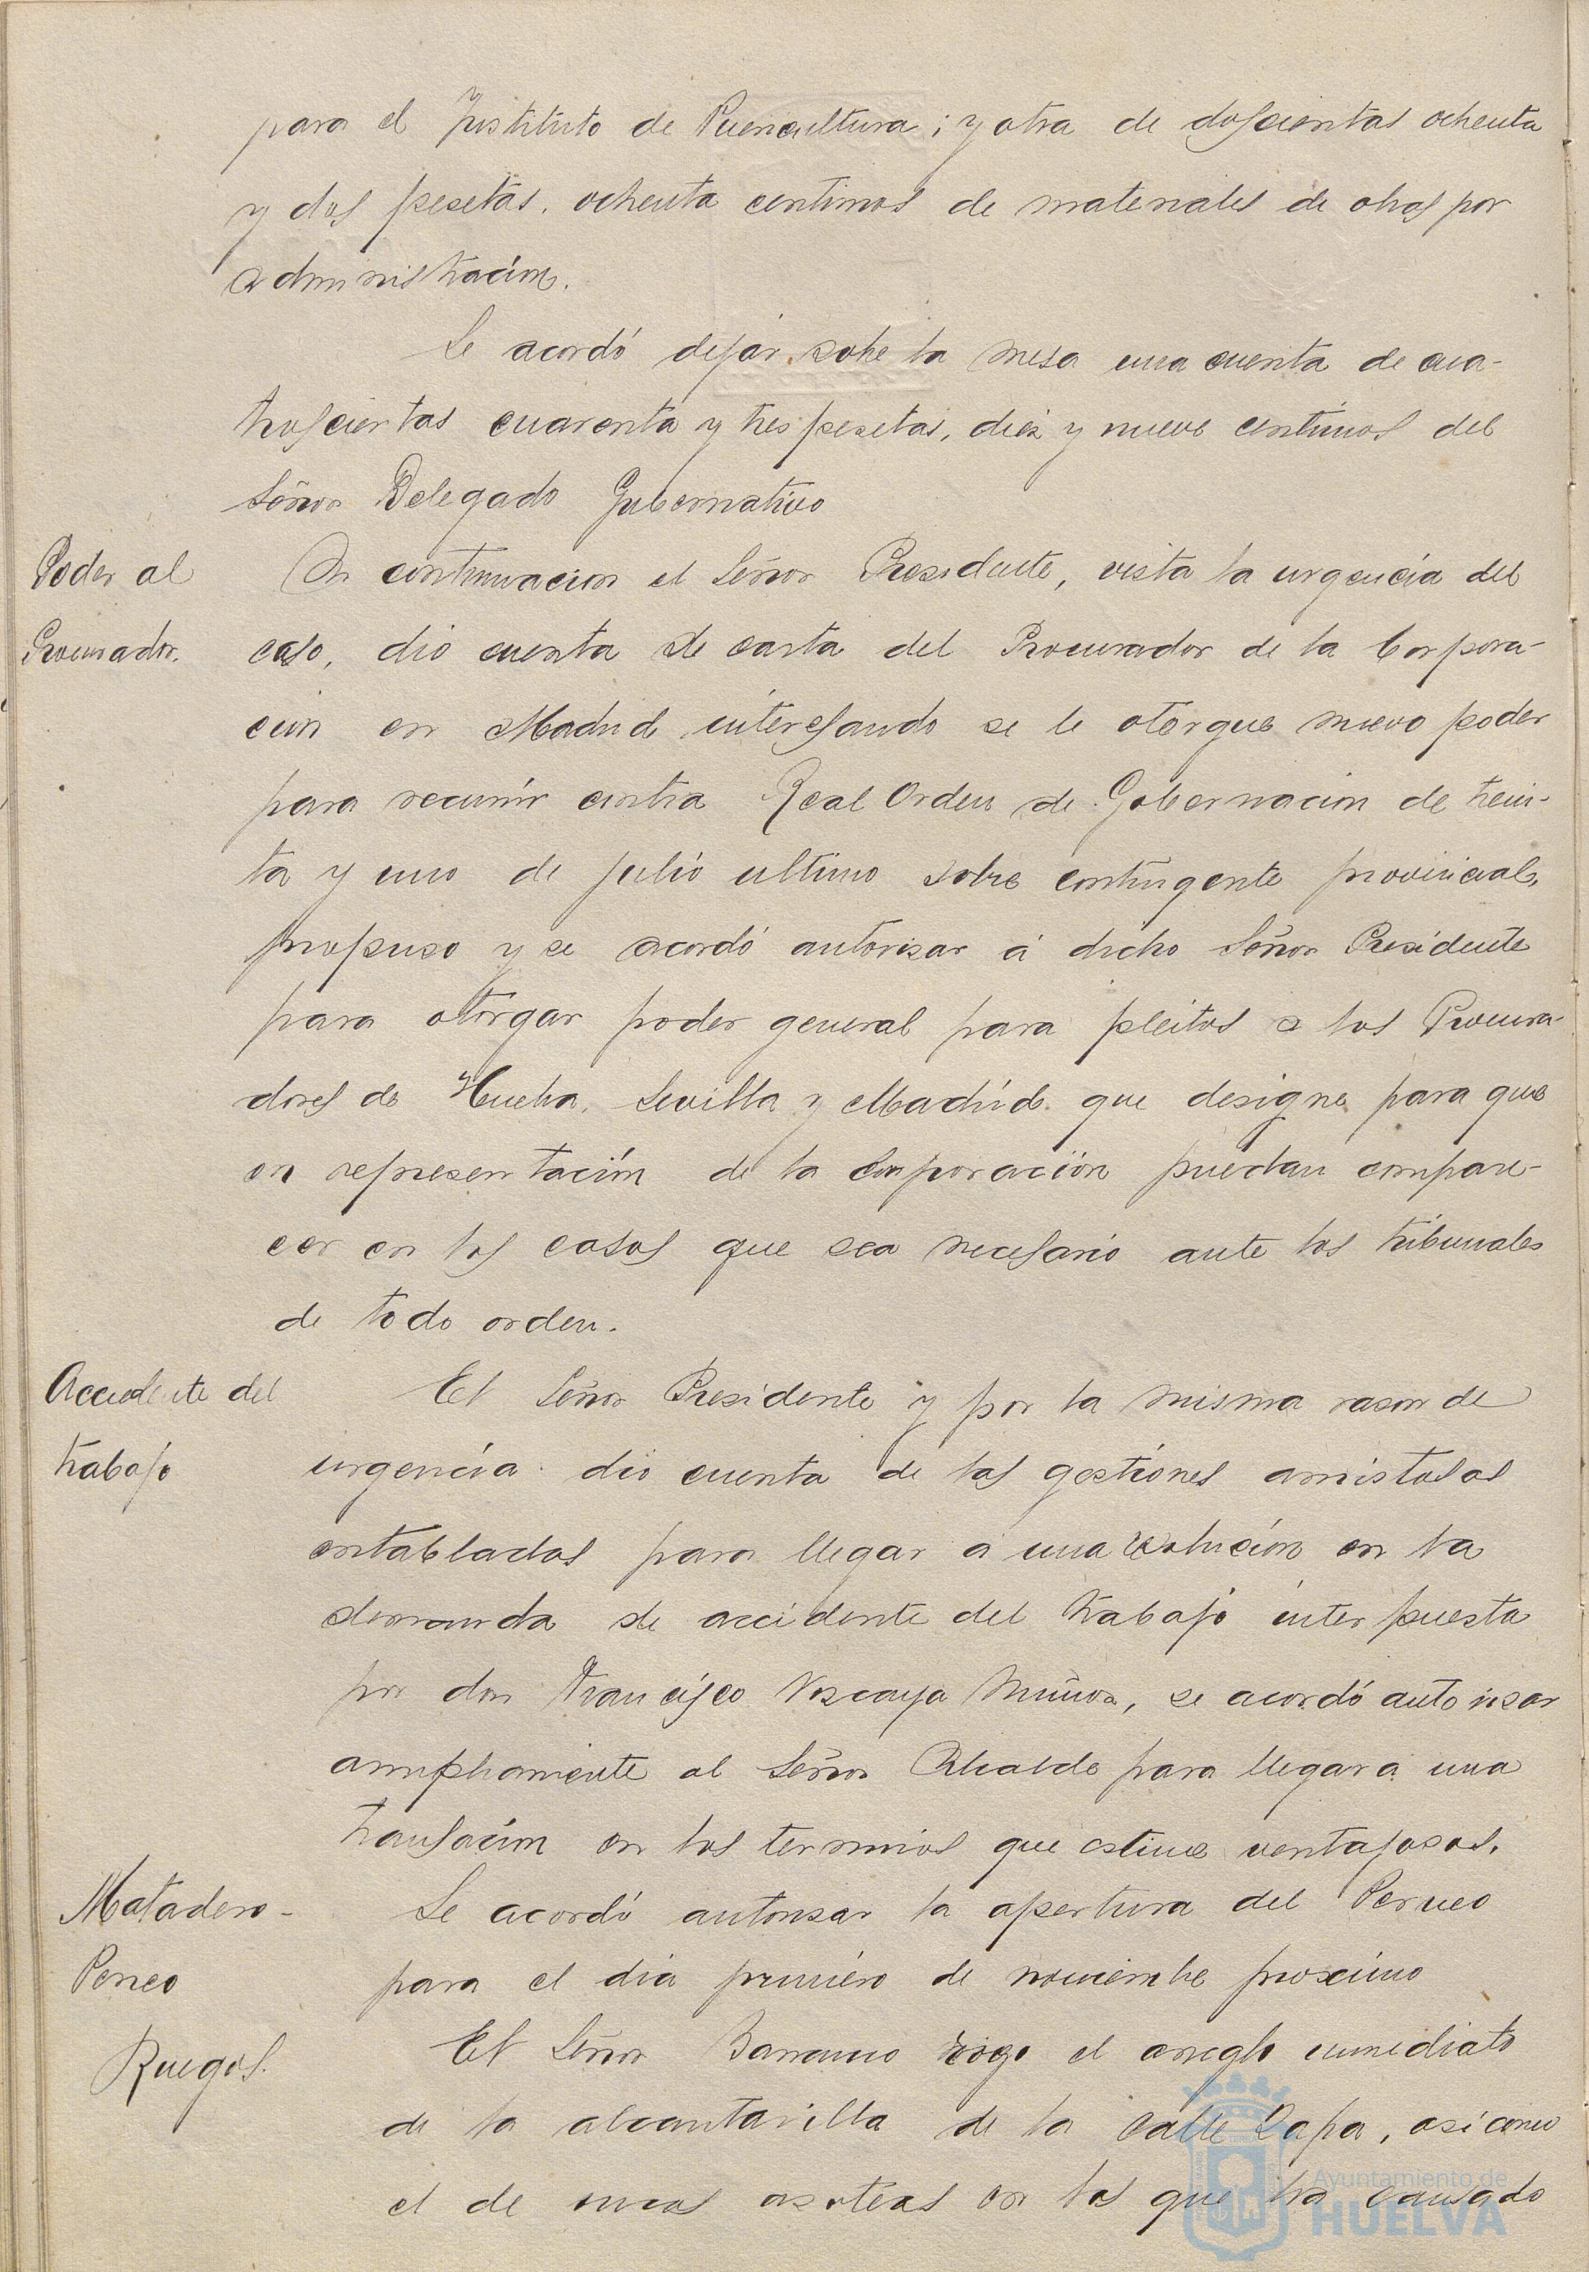 para el Instituto de Puericultura; y otra de doscientas ochenta
y dos pesetas, ochenta centimos de materiales de obras por
administración.
Se acordó dejar sobre la mesa una cuenta de cua-
troscientas cuarenta y tres pesetas, diez y nueve centimos del
Señor Delegado Gubernativo
Poder al
Procurador.
A continuacion el Señor Presidente, vista la urgencia del
caso, dio cuenta de carta del Procurador de la Corpora-
ción en Madrid interesando se le otorgue nuevo poder
para recurrir contra Real Orden de Gobernacion de trein-
ta y uno de julio ultimo sobre contingente provincial,
propuso y se acordó autorisar á dicho Señor Presidente
para otorgar poder general para pleitos a los Procura-
dores de Huelva, Sevilla y Madrid que designe para que
en representación de la Corporación puedan compare-
cer en los casos que sea necesario ante los tribunales
de todo orden.
Accidente del
trabajo
El Señor Presidente y por la misma rason de
urgencia dio cuenta de las gestiones amistosas
entabladas para llegar a una solución en la
demanda de accidente del trabajo interpuesta
por don Francisco Viscaya Muños, se acordó autorisar
ampliamente al Señor Alcalde para llegar a una
transación en los terminos que estime ventajosos.
Matadero-
Perneo
Se acordó autorisar la apertura del Perneo
para el dia primero de noviembre proximo
Ruegos.
El Señor Barranco rogo el arreglo inmediato
de la alcantarilla de la Calle Rapa, asi como
el de unas asoteas en las que ha causado
Ayuntamiento de
HUELVA